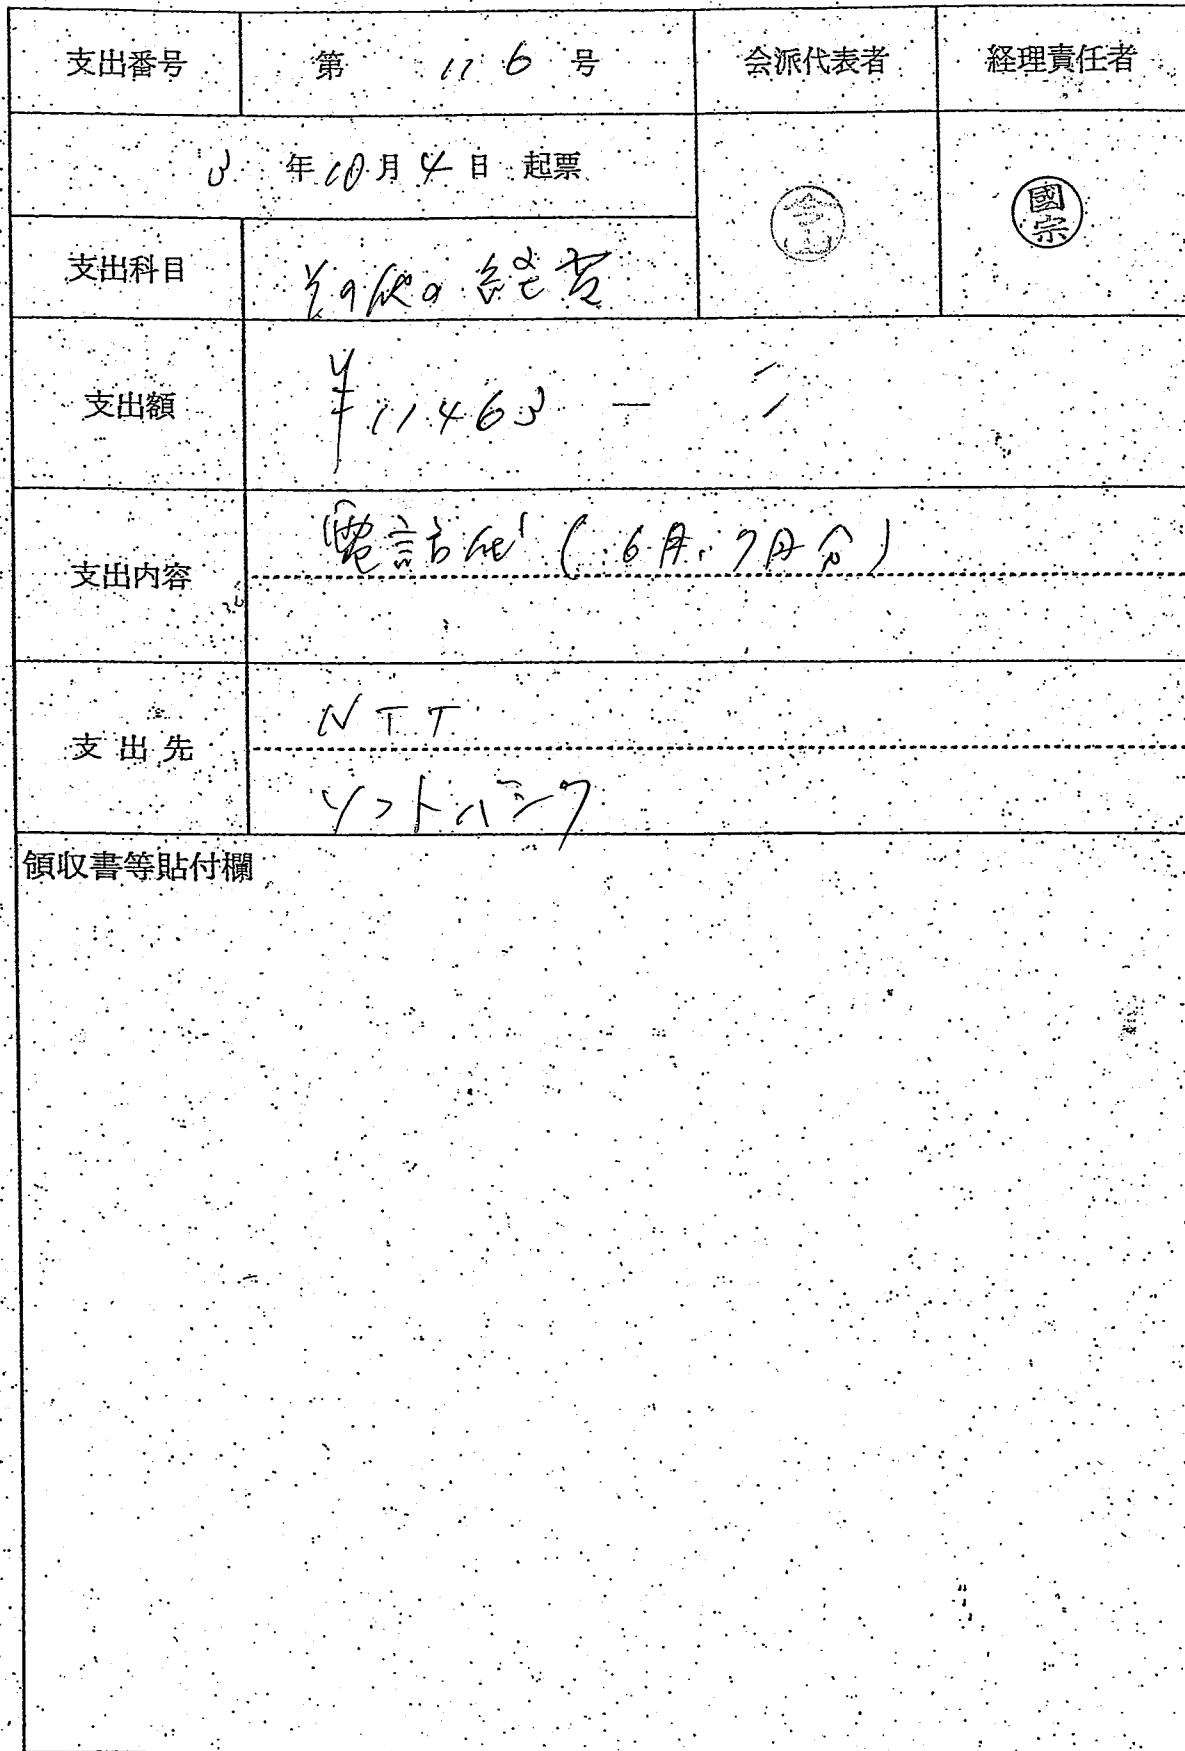 支出番号 第 116 号 会派代表者 経理責任者
3 年 10 月 4 日 起票
國宗
支出科目 その他の経費
支出額 ¥11463 —
支出内容 電話代 (6月、7月分)
支出先 NTT
ソフトバンク
領収書等貼付欄